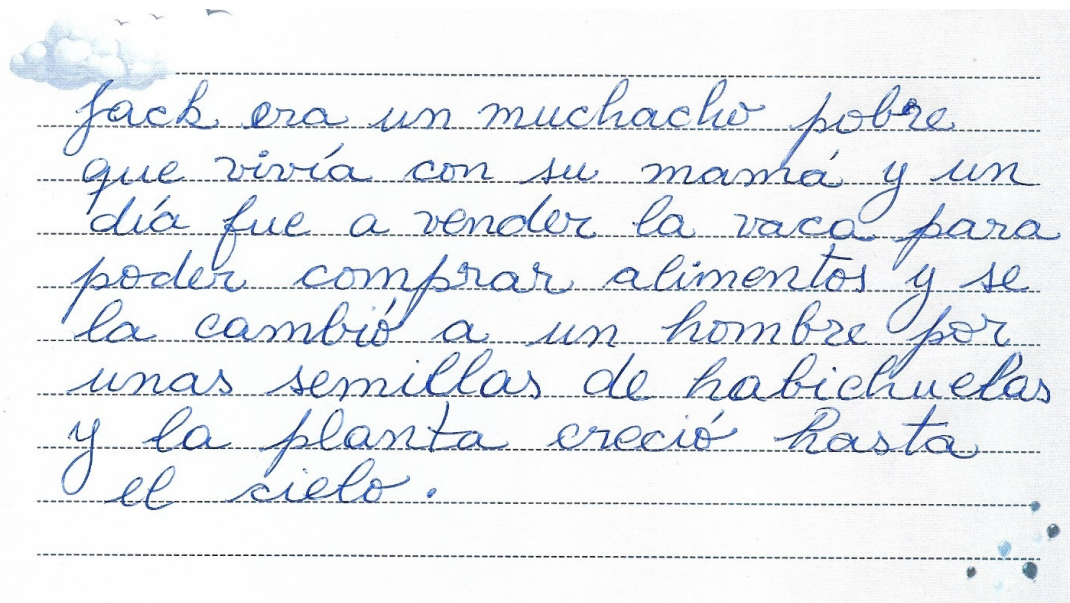 Jack era un muchacho pobre
que vivía con su mamá y un
día fue a vender la vaca para
poder comprar alimentos y se
la cambió a un hombre por
unas semillas de habichuelas
y la planta creció hasta
el cielo.